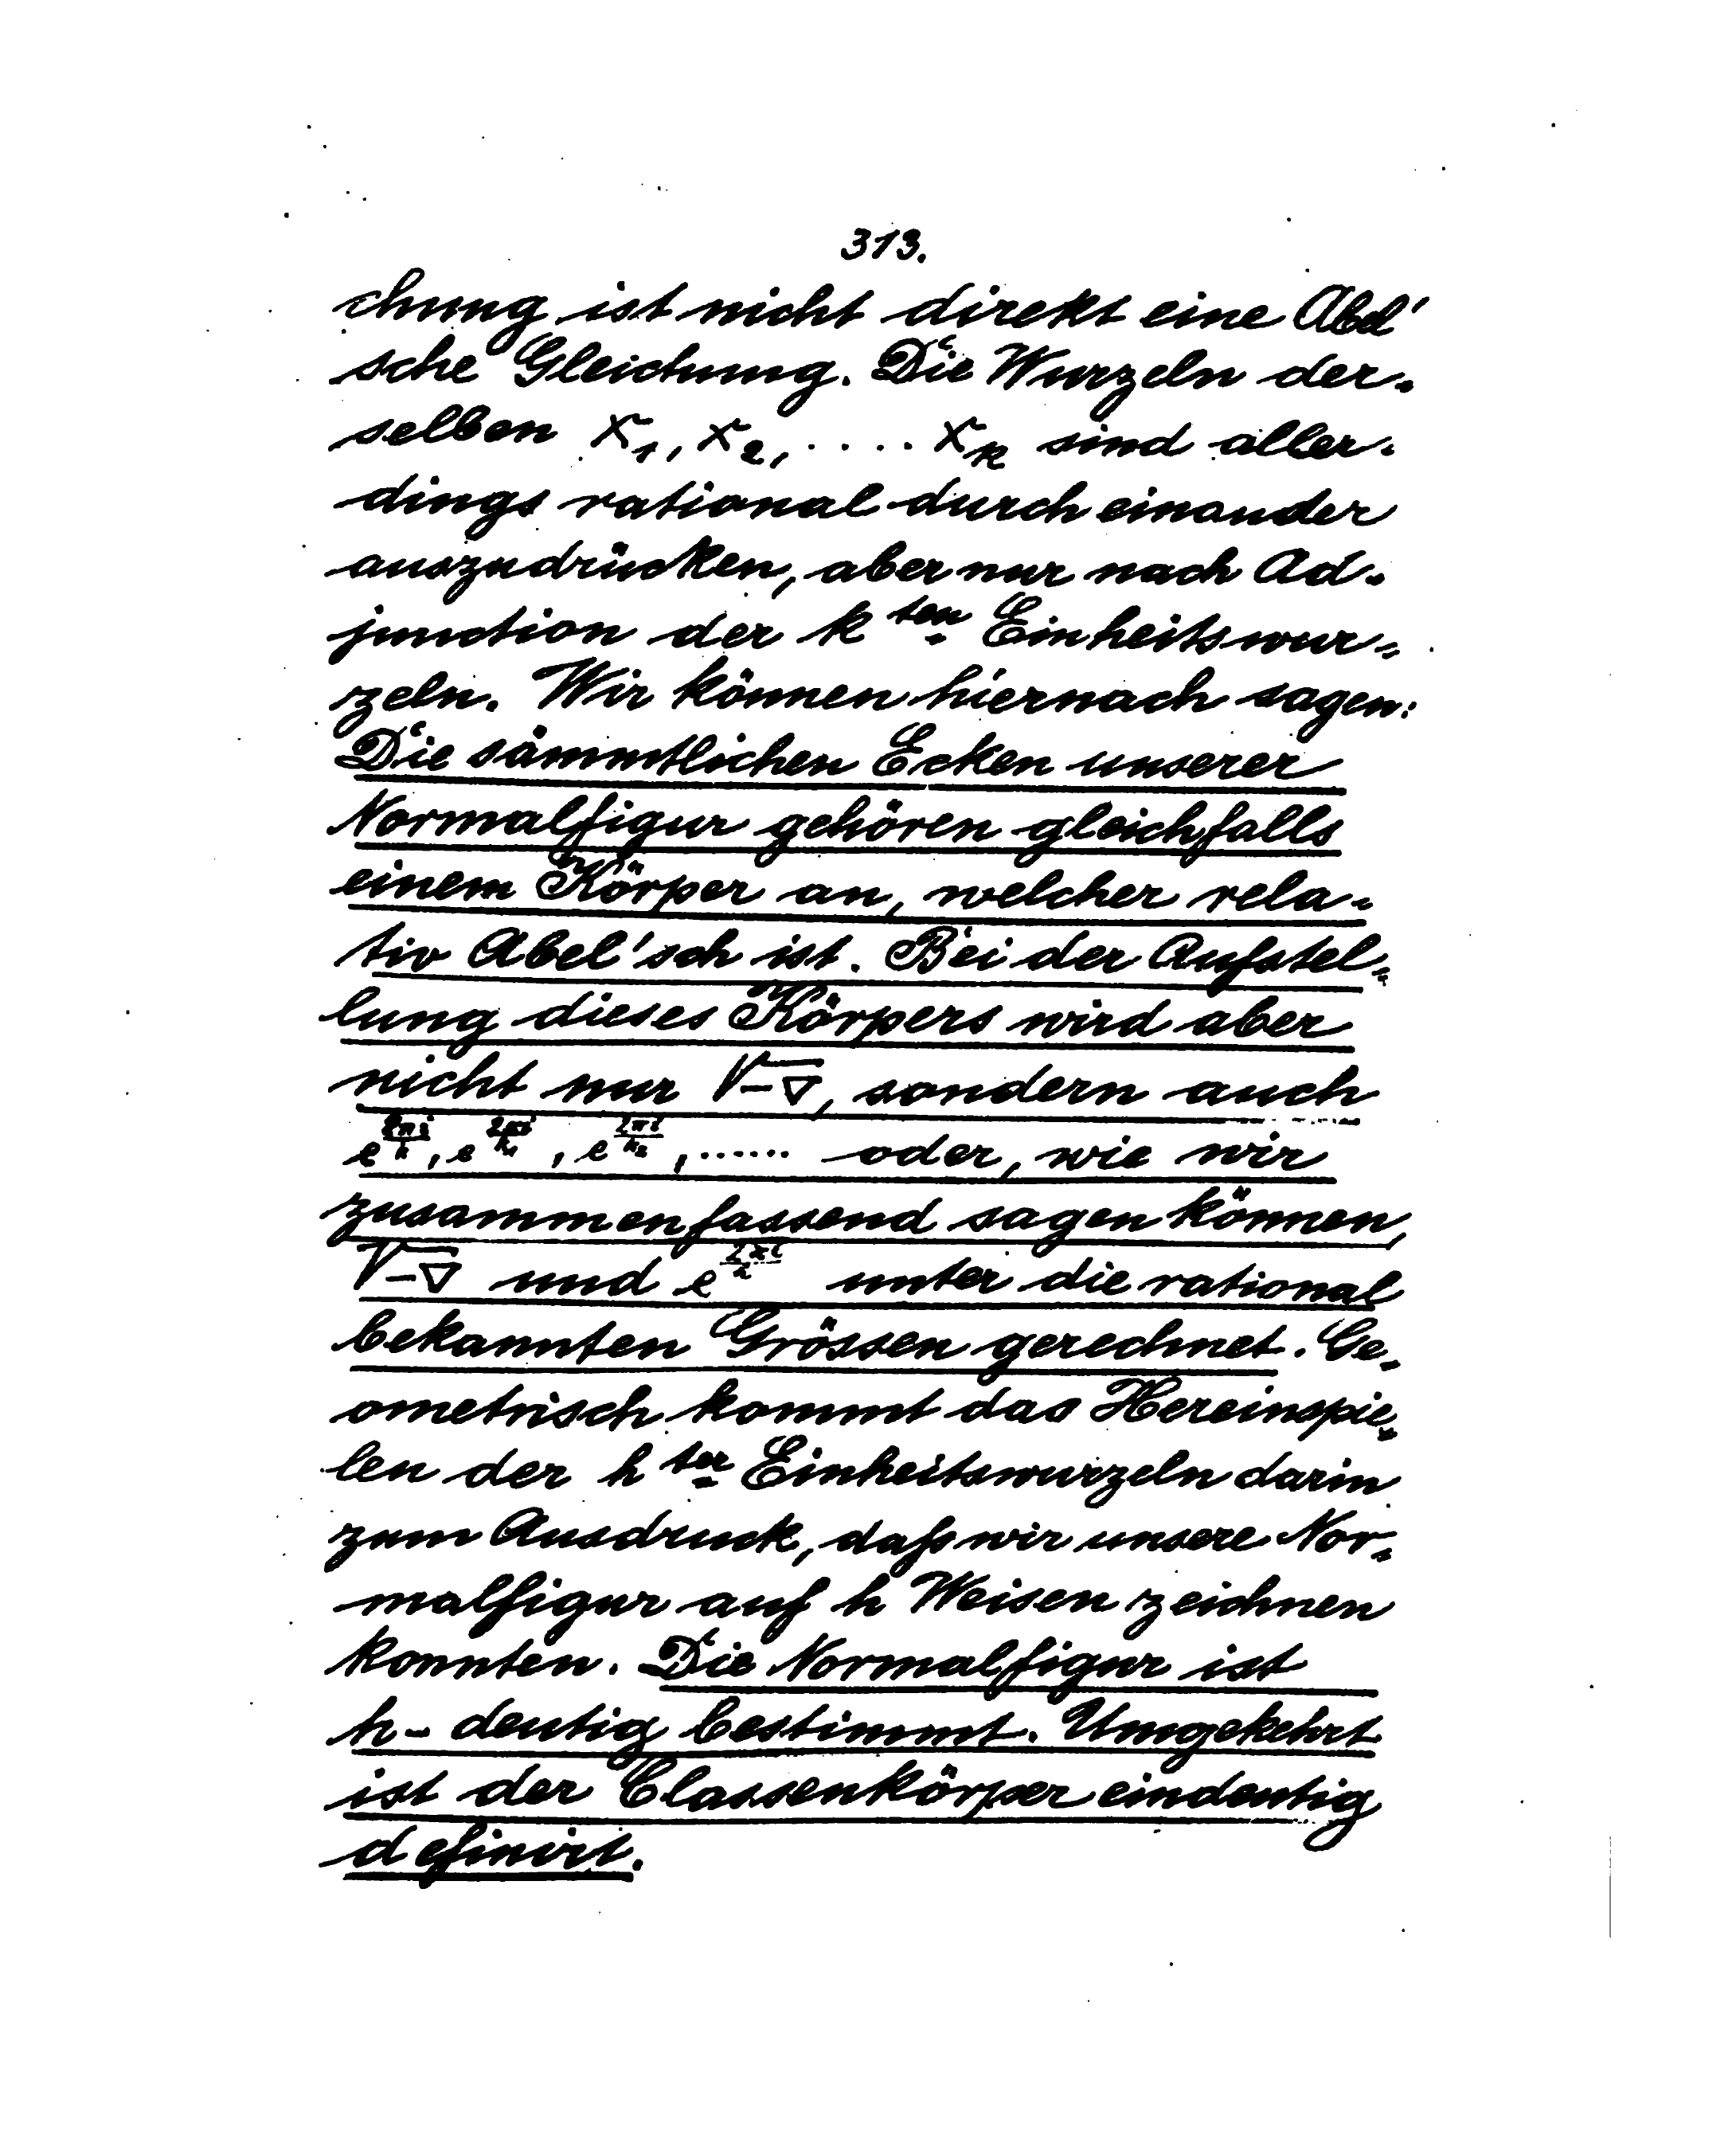 313.
chung ist nicht direkt eine Abel'
sche Gleichung. Die Wurzeln der-
selben x₁, x₂, .... xₖ sind aller-
dings rational durch einander
auszudrücken, aber nur nach Ad-
junction der k ten Einheitswur-
zeln. Wir können hiernach sagen:
Die sämmtlichen Ecken unserer
Normalfigur gehören gleichfalls
einem Körper an, welcher rela-
tiv Abel'sch ist. Bei der Aufstel-
lung dieses Körpers wird aber
nicht nur √-▽, sondern auch
e^{2πi/k}, e^{2πi/k₁}, e^{2πi/k₂}, ...... oder, wie wir
zusammenfassend sagen können,
√-▽ und e^{2πi/h} unter die rational
bekannten Grössen gerechnet. Ge-
ometrisch kommt das Hereinspie-
len der h ter Einheitswurzeln darin
zum Ausdruck, daß wir unsere Nor-
malfigur auf h Weisen zeichnen
konnten. Die Normalfigur ist
h-deutig bestimmt. Umgekehrt
ist der Classenkörper eindeutig
definirt.